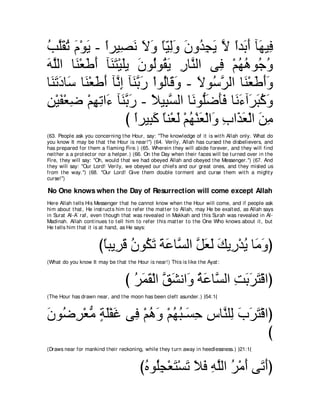 فِيهَآ أَبَداً لاَّ يَجِدُونَ وَلِيّاً وَلاَ نَصِيراً - يَوْمَ تُقَلَّبُ
وُجُوهُهُمْ فِى النَّارِ يَقُولُونَ يلَيْتَنَآ أَطَعْنَا اللَّهَ
وَأَطَعْنَا الرَّسُولاَ - وَقَالُواْ رَبَّنَآ إِنَّآ أَطَعْنَا سَادَتَنَا
وَكُبَرَآءَنَا فَأَضَلُّونَا السَّبِيلاْ - رَبَّنَآ ءَاتِهِمْ ضِعْفَيْنِ
مِنَ الْعَذَابِ وَالْعَنْهُمْ لَعْناً كَبِيراً )
(63. People ask you concerning the Hour, say: "The knowledge of it is with Allah only. What do
you know It may be that the Hour is near!'') (64. Verily, Allah has cursed the disbelievers, and
has prepared for them a flaming Fire.) (65. Wherein they will abide forever, and they will find
neither a protector nor a helper.) (66. On the Day when their faces will be turned over in the
Fire, they will say: "Oh, would that we had obeyed Allah and obeyed the Messenger.'') (67. And
they will say: "Our Lord! Verily, we obeyed our chiefs and our great ones, and they misled us
from the way.'') (68. "Our Lord! Give them double torment and curse them with a mighty
curse!'')
No One knows when the Day of Resurrection will come except Allah
Here Allah tells His Messenger that he cannot know when the Hour will come, and if people ask
him about that, He instructs him to refer the matter to Allah, may He be exalted, as Allah says
in Surat Al-A`raf, even though that was revealed in Makkah and this Surah was revealed in Al-
Madinah. Allah continues to tell him to refer this matter to the One Who knows about it, but
He tells him that it is at hand, as He says:
(وَمَا يُدْرِيكَ لَعَلَّ السَّاعَةَ تَكُونُ قَرِيباً)
(What do you know It may be that the Hour is near!) This is like the Ayat:
(اقْتَرَبَتِ السَّاعَةُ وَانشَقَّ الْقَمَرُ )
(The Hour has drawn near, and the moon has been cleft asunder.) (54:1)
(اقْتَرَبَ لِلنَّاسِ حِسَـبُهُمْ وَهُمْ فِى غَفْلَةٍ مُّعْرِضُونَ
)
(Draws near for mankind their reckoning, while they turn away in heedlessness.) (21:1)
(أَتَى أَمْرُ اللَّهِ فَلاَ تَسْتَعْجِلُوهُ)